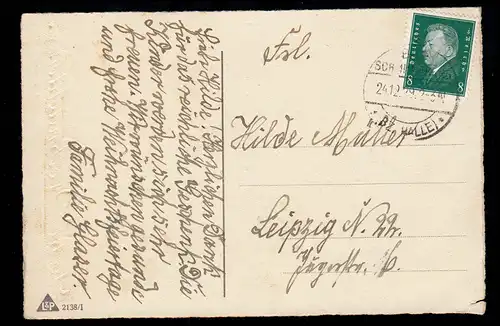 Lieb. Hilde! Herzlichen Dank
für das reichliche Gedenk. Die
Kinder werden sich sehr
freuen. Wir wünschen gesunde
und frohe Weihnachtsfeiertage
Familie Glaser.
Frl.
Hilde Müller
Leipzig N. 22.
Jägerstr.
Deutsches Reich
8 8
24.12.29
HALLE)
L&P
2138/I